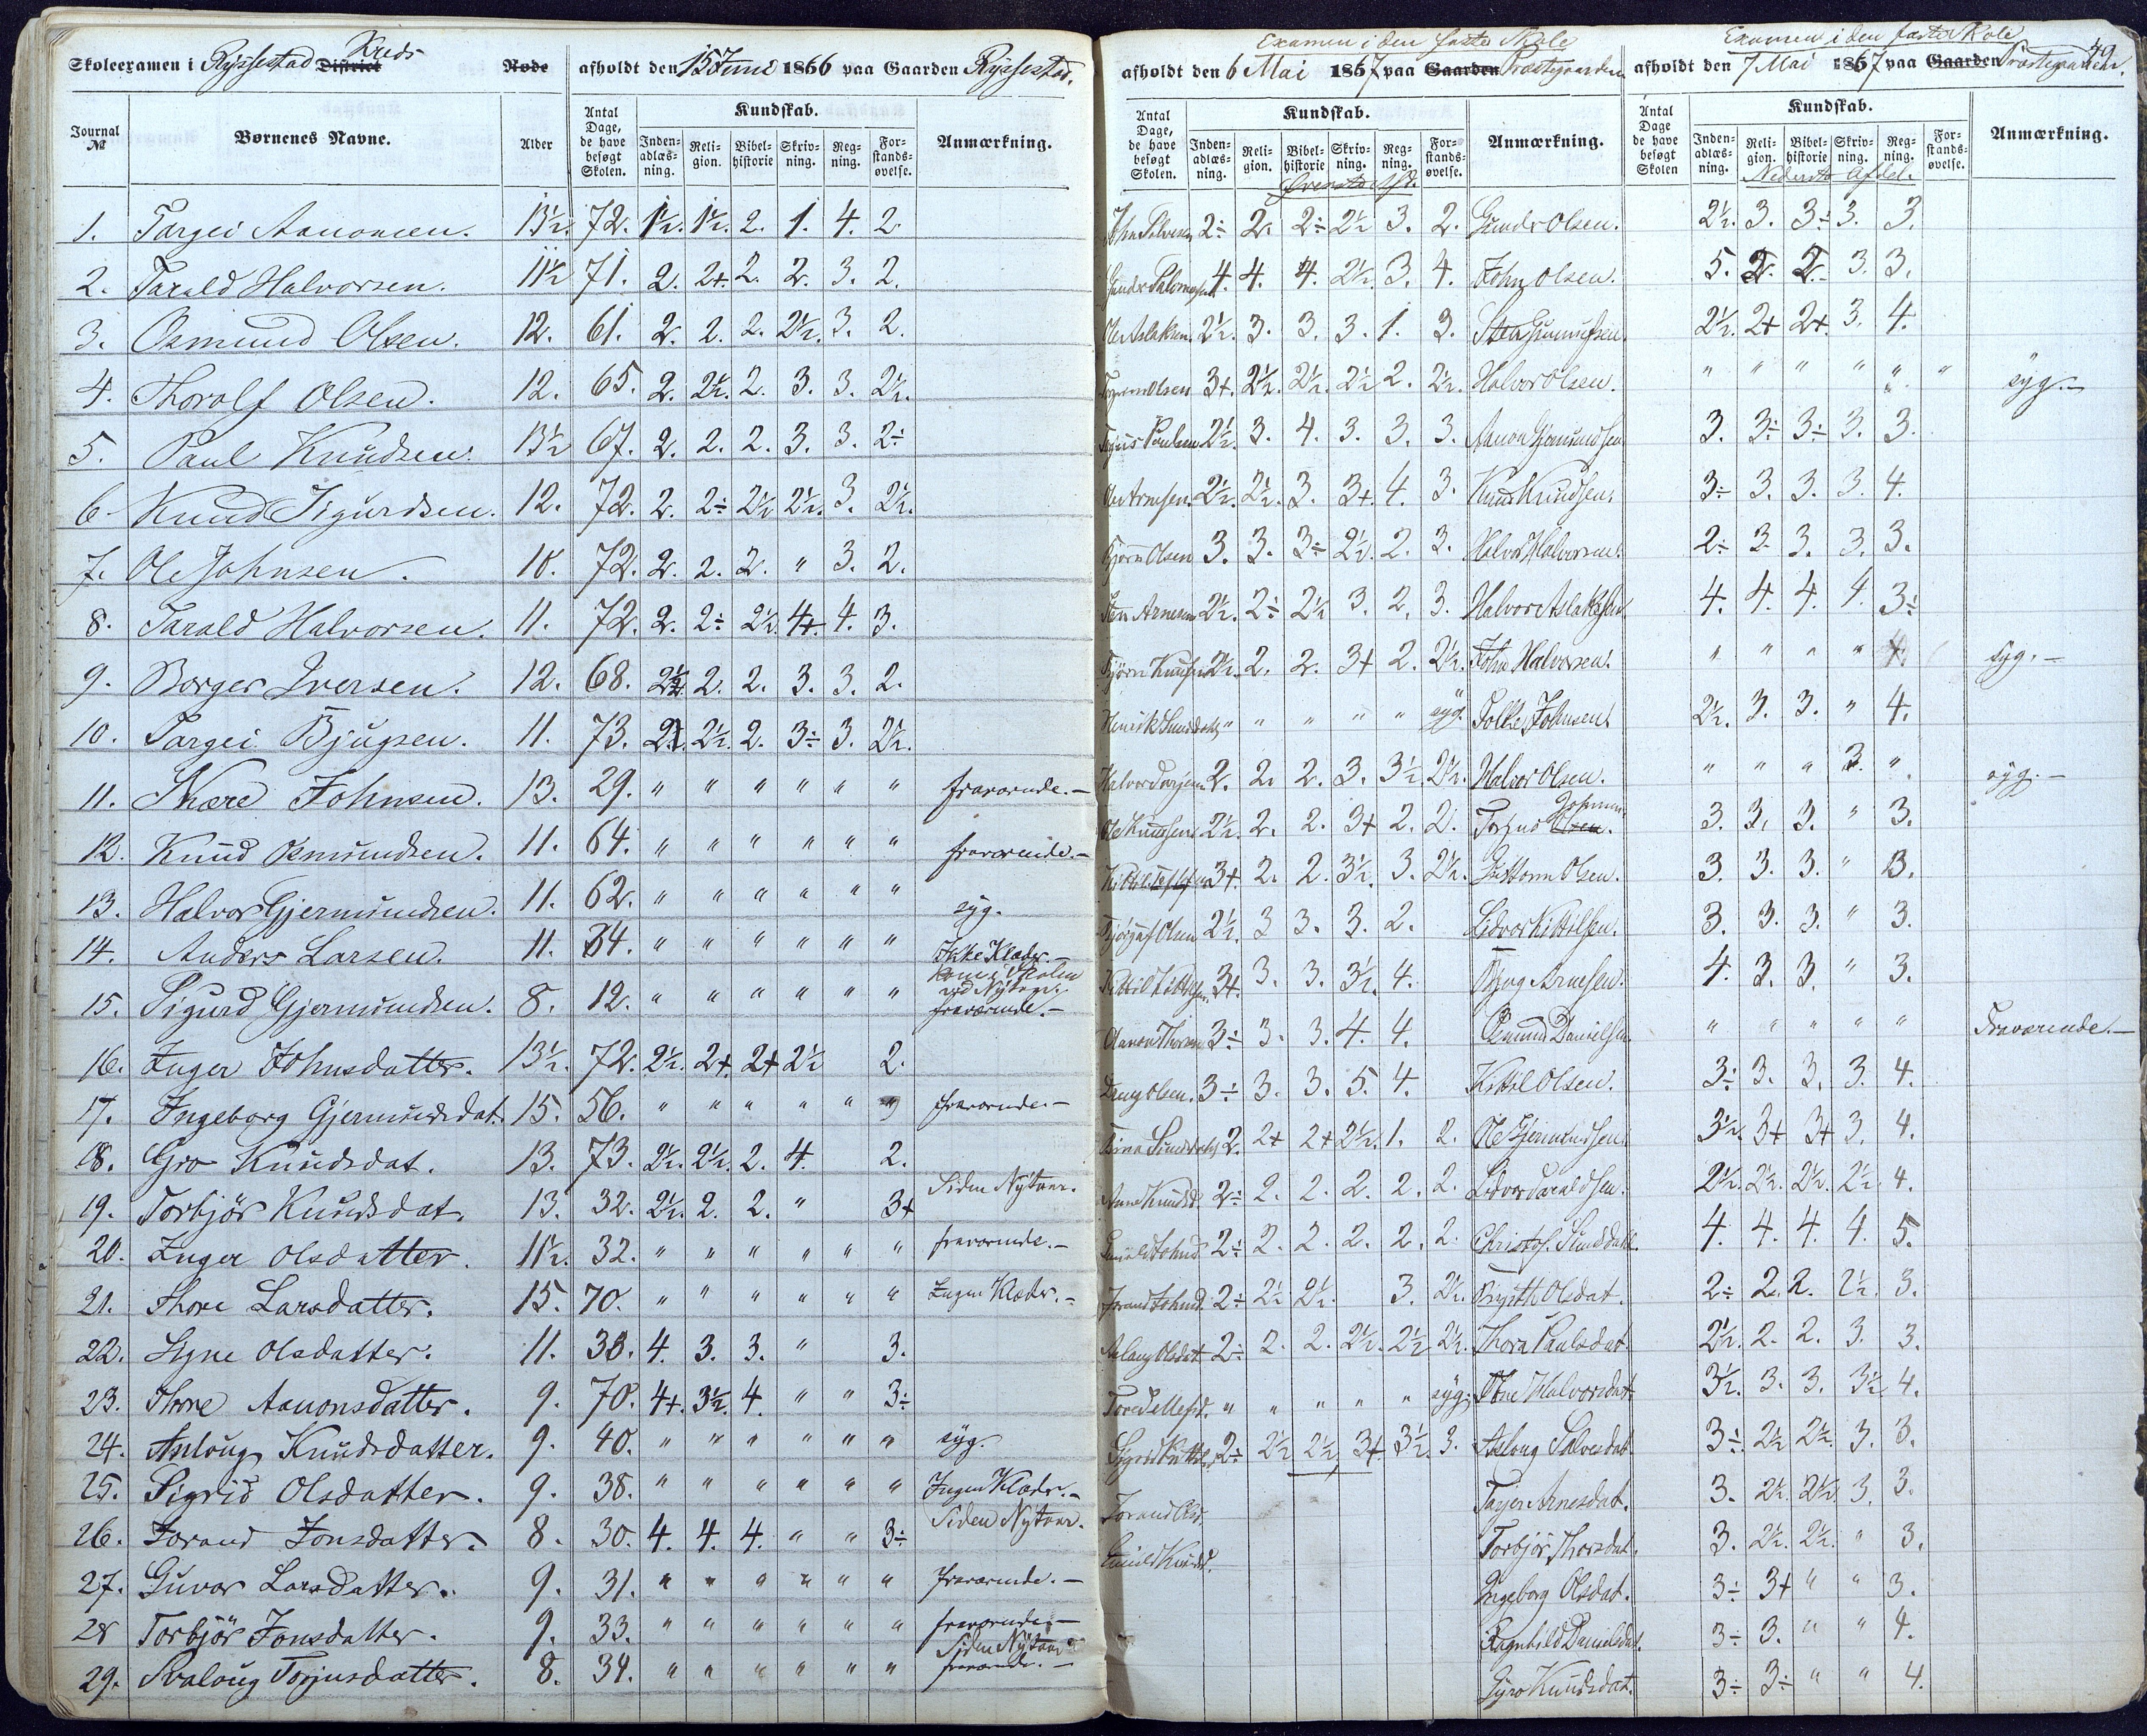 Skoleexamen i Ryssestad District Kreds Rode afholdt den 15 Juni 1866 paa Gaarden Ryssestad.
Journal № Børnenes Navne. Alder Antal Dage, de have besøgt Skolen. Kundskab. Anmærkning.
Inden-adlæs-ning. Reli-gion. Bibel-historie Skriv-ning. Reg-ning. For-stands-øvelse.
1. Targei Aanonsen. 13½. 72. 1½. 1½. 2. 1. 4. 2.
2. Tarald Halvorsen. 11½ 71. 2. 2+. 2. 2. 3. 2.
3. Osmund Olsen. 12. 61. 2. 2. 2. 2½. 3. 2.
4. Thorolf Olsen. 12. 65. 2. 2½. 2. 3. 3. 2½.
5. Paul Knudsen. 13½ 67. 2. 2. 2. 3. 3. 2÷
6. Knud Sigurdsen. 12. 72. 2. 2÷ 2½ 2½. 3. 2½.
7. Ole Johnsen. 10. 72. 2. 2. 2. " 3. 2.
8. Tarald Halvorsen. 11. 72. 2. 2÷ 2½. 4+. 4. 3.
9. Borger Iversen. 12. 68. 2½. 2. 2. 3. 3. 2.
10. Targei Bjugsen. 11. 73. 2. 2½. 2. 3÷ 3. 2½.
11. Skære Johnsen. 13. 29. " " " " " " fraværende.—
12. Knud Osmundsen. 11. 64. " " " " " " fraværende.—
13. Halvor Gjermundsen. 11. 62. " " " " " " syg.
14. Anders Larsen. 11. 34. " " " " " " Ikke Klæder.—
15. Sigurd Gjermundsen. 8. 12. " " " " " " kom i Skolen ved Nytaar. fraværende.—
16. Inger Johnsdatter. 13½. 72. 2½. 2+. 2+ 2½ 2.
17. Ingeborg Gjermundsdat. 15. 56. " " " " " " fraværende.—
18. Gro Knudsdat. 13. 73. 2½. 2½. 2. 4. 2.
19. Torbjör Knudsdat. 13. 32. 2½. 2. 2. " 3+ Siden Nytaar.
20. Inger Olsdatter. 11½. 32. " " " " " " fraværende.—
21. Thore Larsdatter. 15. 70. " " " " " " Ingen Klæder.—
22. Signe Olsdatter. 11. 38. 4. 3. 3. " 3.
23. Thore Aanonsdatter. 9. 70. 4+. 3½. 4. " " 3÷
24. Asloug Knudsdatter. 9. 40. " " " " " " syg.
25. Sigrid Olsdatter. 9. 38. " " " " " " Ingen Klæder.—
26. Jorand Jonsdatter. 8. 30. 4. 4. 4. " " 3÷ Siden Nytaar.
27. Guvor Larsdatter. 9. 31. " " " " " " fraværende.—
28 Torbjör Jonsdatter. 9. 33. " " " " " " fraværende.—
29. Svaloug Torjusdatter. 8. 34. " " " " " " Siden Nytaar fraværende.—
Examen i den faste Skole
afholdt den 6 Mai 1867 paa Gaarden Præstegaarden
Antal Dage, de have besøgt Skolen. Kundskab. Anmærkning.
Inden-adlæs-ning. Reli-gion. Bibel-historie Skriv-ning. Reg-ning. For-stands-øvelse.
Øverste Afd.
2÷ 2. 2÷ 2½ 3. 2.
Gundr Salomonsen. 4. 4. 4. 2½. 3. 4.
Ole Aslaksen. 2½. 3. 3. 3. 1. 3.
Olsen 3+. 2½. 2½. 2½ 2. 2½.
Torjus Paulsen 2½. 3. 4. 3. 3. 3.
Ole Arnesen. 2½. 2½. 3. 3+. 4. 3.
Bjørn Olsen 3. 3. 3÷ 2½. 2. 3.
Sten Arnesen 2½. 2÷ 2½ 3. 2. 3.
Bjørn Knudsen 2½. 2. 2. 3+ 2. 2½.
Henrik Sunddahl " " " " " syg.
Halvor 2. 2. 2. 3. 3½. 2½.
Ole Knudsen 2½. 2. 2. 3+ 2. 2.
Kittil 3+. 2. 2. 3½. 3. 2½.
Olsen 2½. 3 3. 3. 2.
Kittil Kittilsen. 3+. 3. 3. 3½. 4.
Aanon 3÷ 3. 3. 4. 4.
Dreng Olsen. 3÷ 3. 3. 5. 4.
Sunddahl 2. 2+ 2+ 2½. 1. 2.
Anne Knudsd. 2÷ 2. 2. 2. 2. 2.
Gunild Johnsd. 2÷ 2. 2. 2. 2. 2.
Jorand Johnsd. 2÷ 2½ 2½. 3. 2½.
Aslaug Olsdat. 2÷ 2. 2. 2½. 2½ 2½.
" " " " " syg.
Sigrid 2÷ 2½ 2½ 3+. 3½. 3.
Jorand Olsd.
Gunild Knudsd.
Examen i den faste Skole
49.
afholdt den 7 Mai 1867 paa Gaarden Præstegaarden.
Antal Dage de have besøgt Skolen Kundskab. Anmærkning.
Inden-adlæs-ning. Reli-gion. Bibel-historie Skriv-ning. Reg-ning. For-stands-øvelse.
Nederste Afdel.
Gundr Olsen. 2½. 3. 3÷ 3. 3.
John Olsen. 5. 2. 2. 3. 3.
Sten Gunnufsen. 2½. 2+ 2+. 3. 4.
Halvor Olsen. " " " " " " syg.—
Aanon Gjermundsen 3. 3÷ 3÷ 3. 3.
Knud Knudsen. 3÷ 3. 3. 3. 4.
Halvor Halvorsen. 2÷ 3. 3. 3. 3.
Halvor Aslaksen. 4. 4. 4. 4. 3÷
John Halvorsen. " " " " syg.—
Folke Johnsen. 2½. 3. 3. " 4.
Halvor Olsen. " " " 3. " syg.—
Torjus Olsen. Johnsen 3. 3. 3. " 3.
Guttorm Olsen. 3. 3. 3. " 3.
Lidvor Kittilsen. 3. 3. 3. " 3.
Bjug Arnesen. 4. 3. 3. " 3.
Osmund Danielsen. " " " " " Fraværende.—
Kittil Olsen. 3÷ 3. 3. 3. 4.
Ole Gjermundsen. 3½. 3+ 3+ 3. 4.
Lidvor Taraldsen. 2½. 2½. 2½. 2½ 4.
Christof. Sunddahl. 4. 4. 4. 4. 5.
Birgith Olsdat. 2÷ 2. 2. 2½. 3.
Thora Paulsdat. 2½. 2. 2. 3. 3.
Halvorsdat. 3½. 3. 3. 3½ 4.
Asloug Salvesdat. 3÷ 2½ 2½. 3. 3.
Arnesdat. 3. 2½. 2½ 3. 3.
Torbjör Thorsdat. 3. 2½. 2½. " 3.
Ingeborg Olsdat. 3÷ 3+ " " 3.
Ragnhild Danielsdat. 3÷ 3. " " 4.
Gyro Knudsdat. 3÷ 3÷ " " 4.